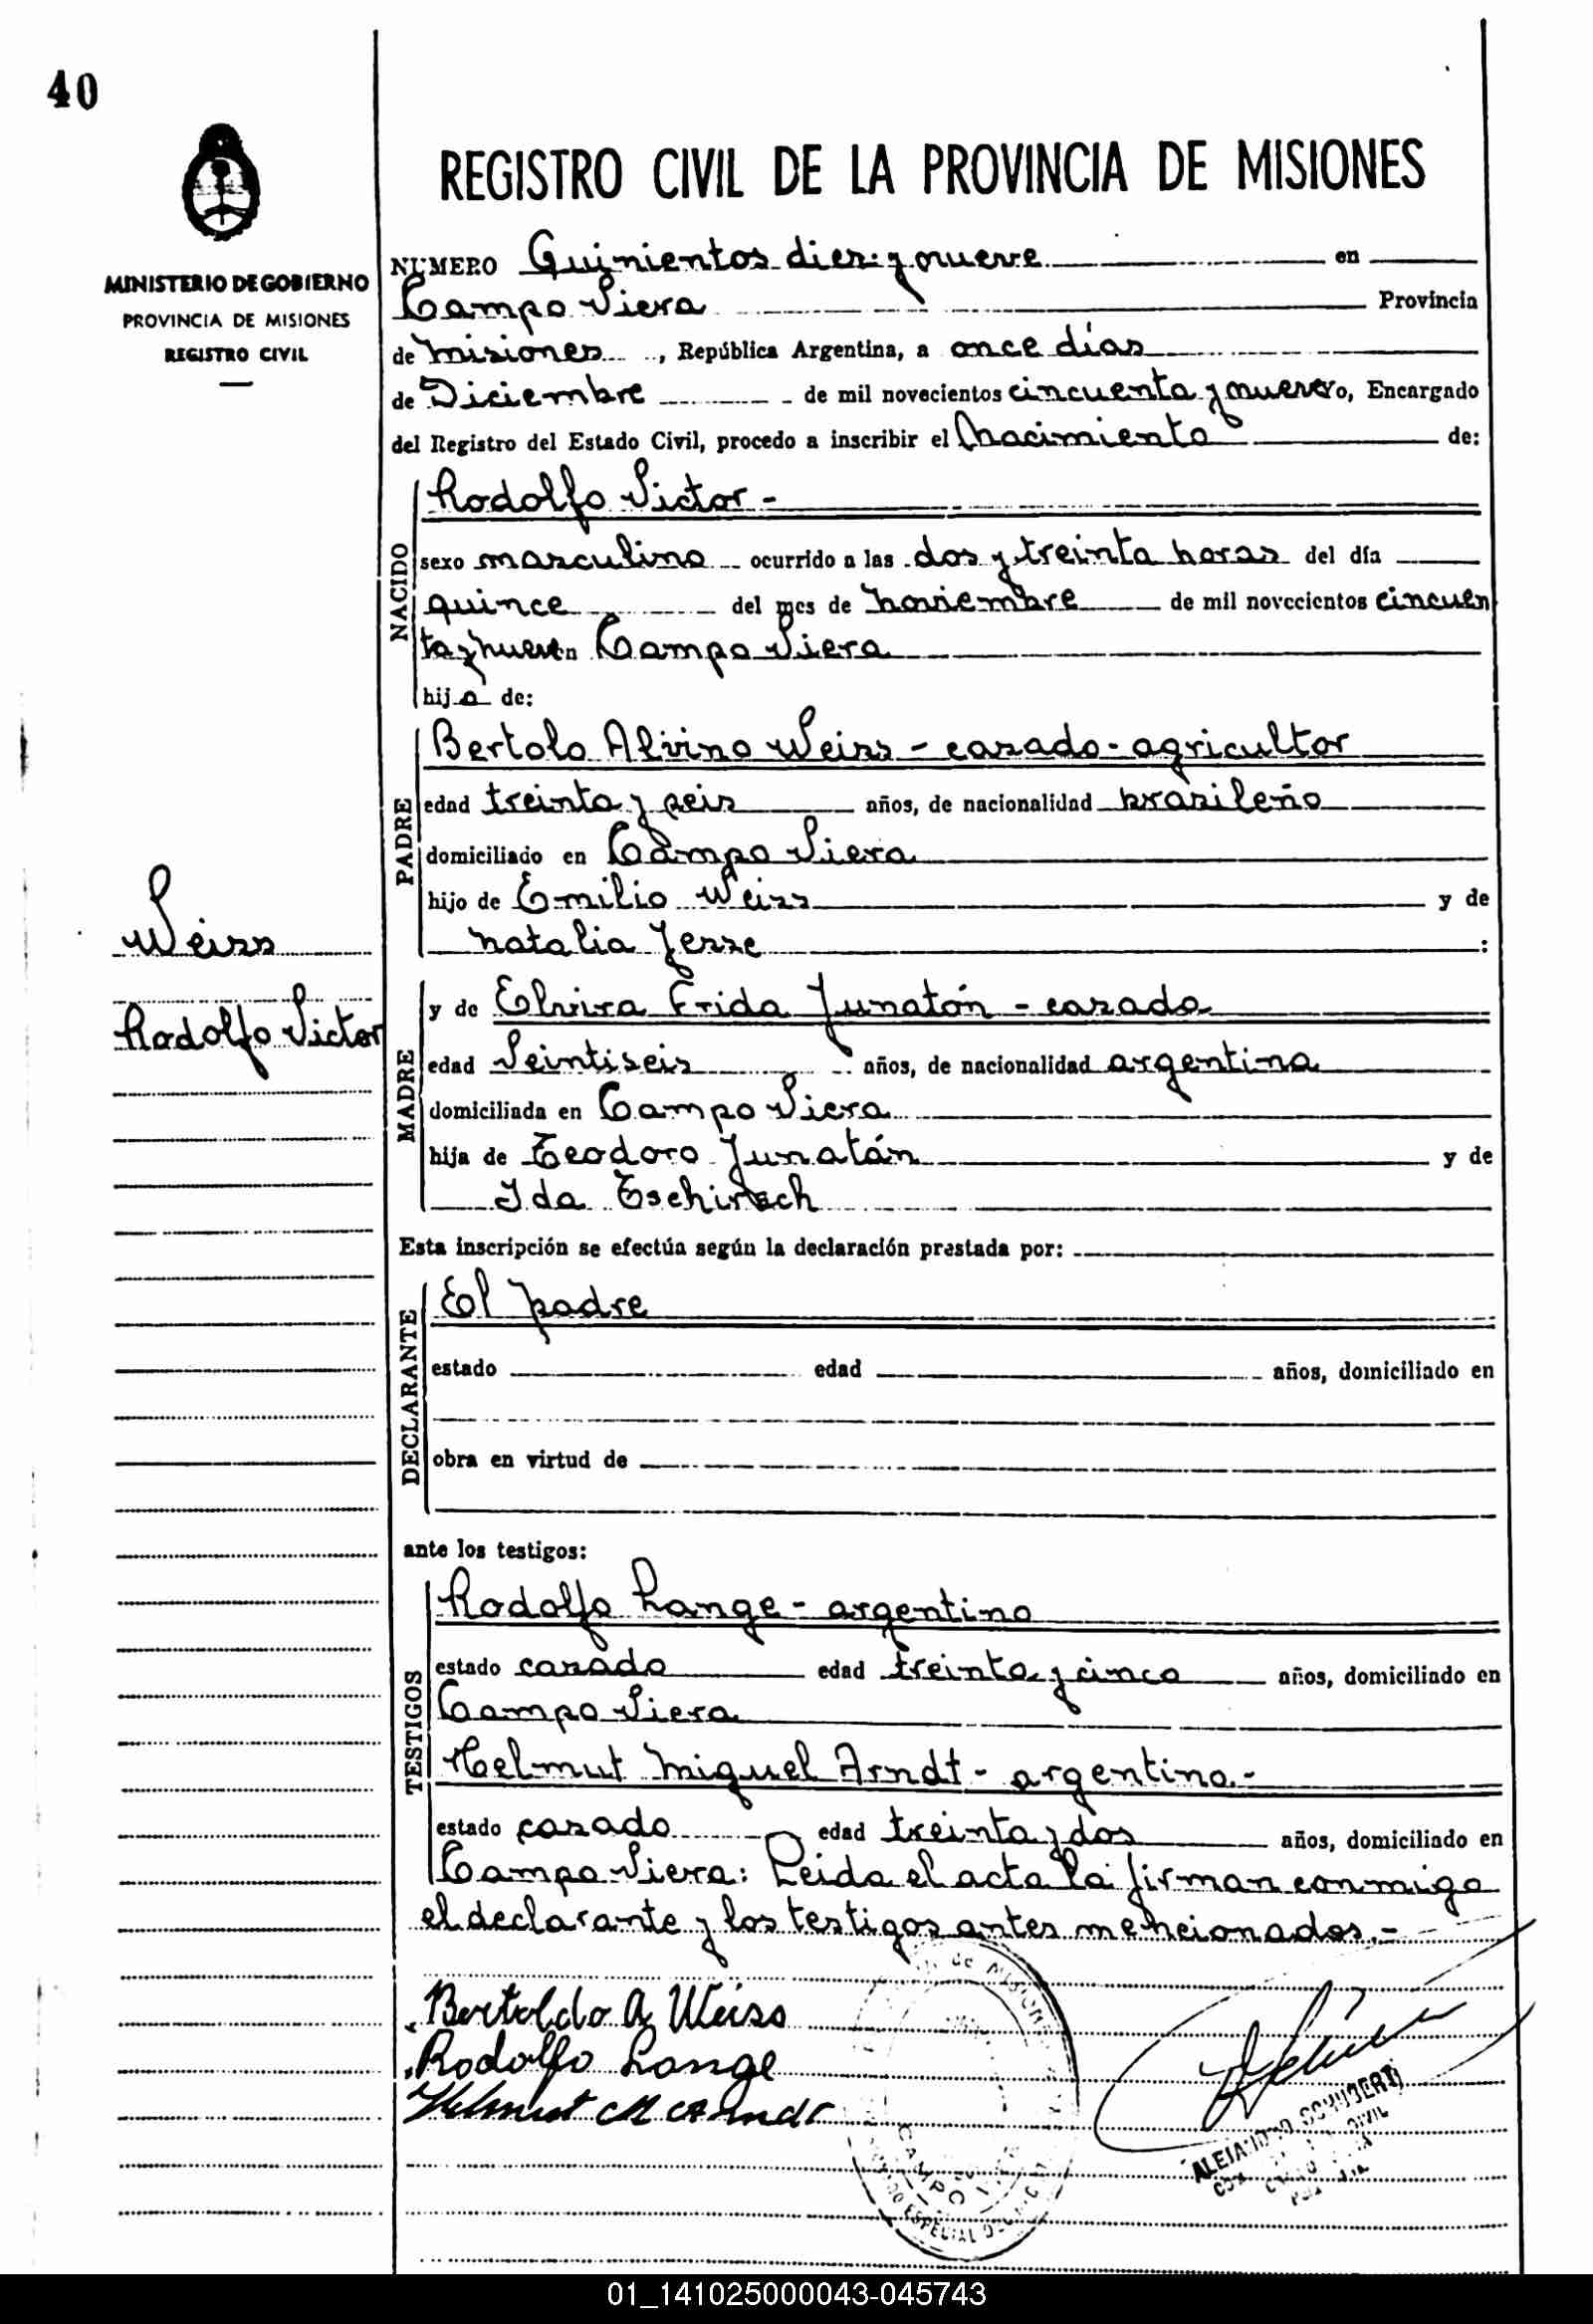 40
REGISTRO CIVIL DE LA PROVINCIA DE MISIONES
MINISTERIO DE GOBIERNO
PROVINCIA DE MISIONES
REGISTRO CIVIL
NUMERO Quinientos diez y nueve en
Campo Viera Provincia
de Misiones, República Argentina, a once días
de Diciembre de mil novecientos cincuenta y nueve yo, Encargado
del Registro del Estado Civil, procedo a inscribir el Nacimiento de:
NACIDO
Rodolfo Victor -
sexo masculino ocurrido a las dos y treinta horas del día
quince del mes de Noviembre de mil novecientos cincuen
ta y nueve en Campo Viera
hijo de:
PADRE
Bertolo Alvino Weiss - casado - agricultor
edad treinta y seis años, de nacionalidad brasileño
domiciliado en Campo Viera
hijo de Emilio Weiss y de
Natalia Jesse :
Weiss
Rodolfo Victor
MADRE
y de Elvira Frida Junatón - casada
edad Veintiseis años, de nacionalidad argentina
domiciliada en Campo Viera
hija de Teodoro Junatán y de
Ida
Esta inscripción se efectúa según la declaración prestada por:
DECLARANTE
El padre
estado edad años, domiciliado en
obra en virtud de
ante los testigos:
TESTIGOS
Rodolfo Lange - argentino
estado casado edad treinta y cinco años, domiciliado en
Campo Viera
Helmut Miguel Arndt - argentino.-
estado casado edad treinta y dos años, domiciliado en
Campo Viera: Leida el acta la firman conmigo
el declarante y los testigos antes mencionados.-
Bertoldo A Weiss
Rodolfo Lange
Helmut M Arndt
de MISIONES
CAMPO
ESPECIAL
ALEJANDRO SCHUBERT
CIVIL
01_141025000043-045743